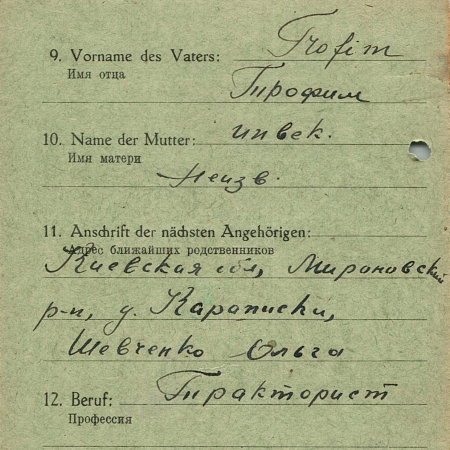 9. Vorname des Vaters: Trofim
Имя отца
Трофим
10. Name der Mutter: unbek.
Имя матери
Неизв.
11. Anschrift der nächsten Angehörigen:
Адрес ближайших родственников
Киевская обл, Мироновский
р-н, д. Карапиши,
Шевченко Ольга
12. Beruf: Тракторист
Профессия